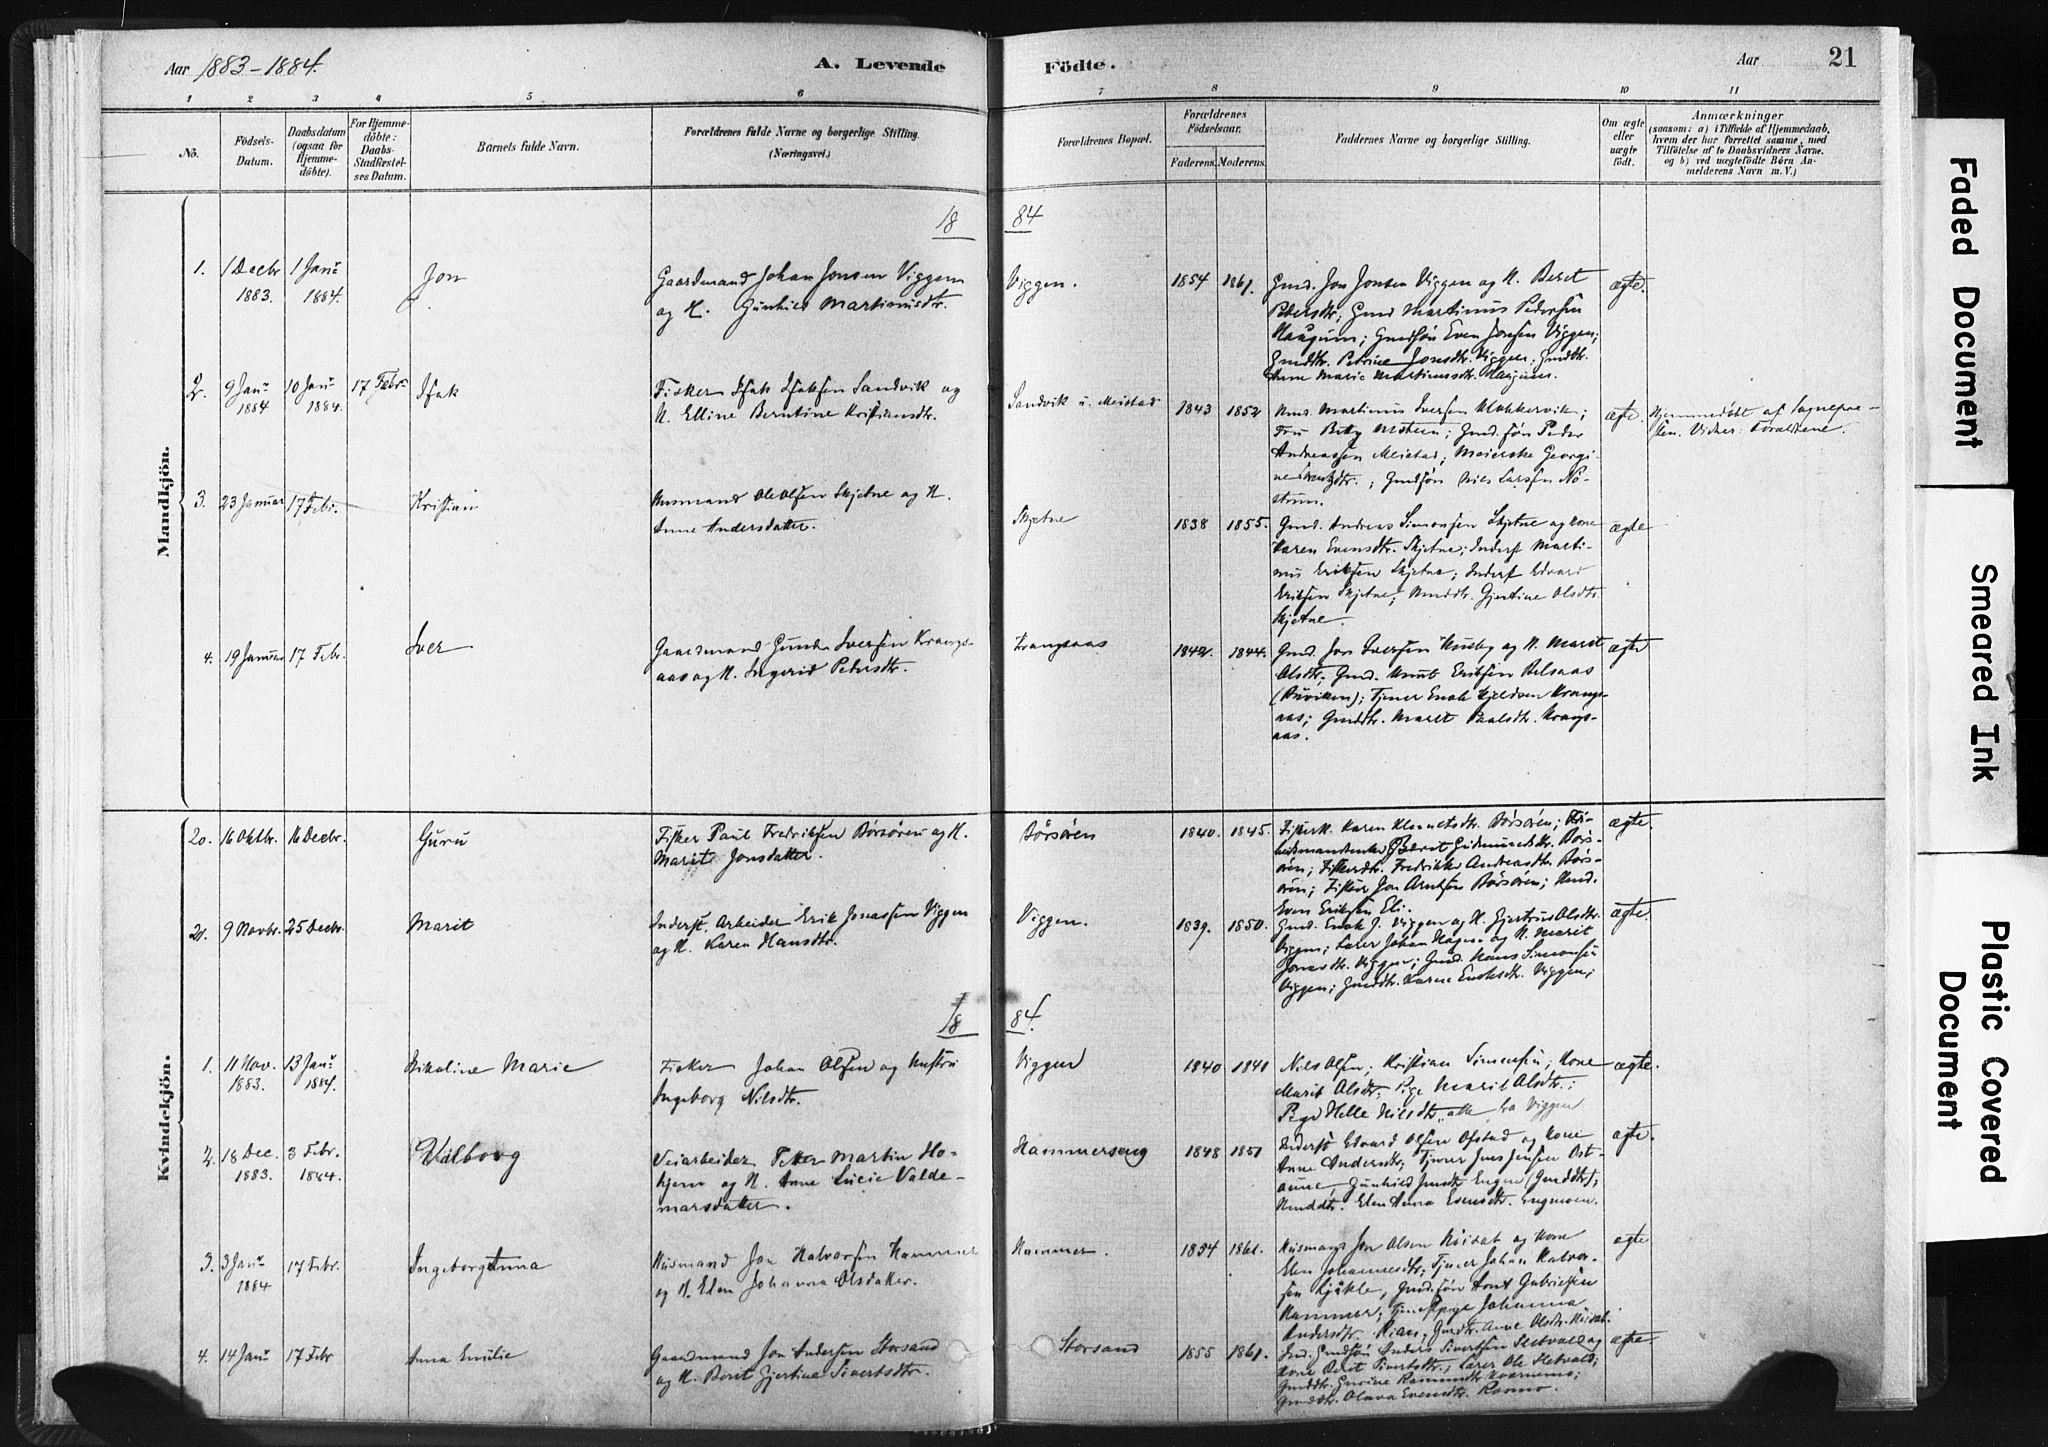 Aar 1883-1884.
A. Levende
Födte.
Aar
21
1
2
3
4
5
6
7
8
9
10
11
No.
Födsels-
Datum.
Daabsdatum
(ogsaa for
Hjemme-
döbte).
For Hjemme-
döbte:
Daabs-
Stadfæstel-
ses Datum.
Barnets fulde Navn.
Forældrenes fulde Navne og borgerlige Stilling.
(Næringsvei.)
Forældrenes Bopæl.
Forældrenes
Födselsaar.
Faderens.
Moderens.
Faddernes Navne og borgerlige Stilling.
Om ægte
eller
uægte
födt.
Anmærkninger
(saasom: a) i Tilfælde af Hjemmedaab,
hvem der har forrettet samme, med
Tilföielse af to Daabsvidners Navne.
og b) ved uægtefödte Börn An-
melderens Navn m. V.)
Mandkjön.
18 84
1. 1 Decbr 1883. 1 Janr 1884. Jon
Gaardmand Johan Jonsen Viggen
og H. Gunhild Martinusdtr.
Viggen. 1854 1861.
Gmd. Jon Jonsen Viggen og H. Beret
Petersdtr; Gmd Martinus Pedersen
Haugum; Gmdsön Even Jonsen Viggen;
Gmddtr. Petrine Jonsdtr. Viggen; Gmddtr.
Anne Marie Martinusdtr. Haugum.
ægte.
2. 9 Janr 1884 10 Janr 1884. 17 Febr. Isak
Fisker Isak Isaksen Sandvik og
H. Elline Berntine Kristiansdtr.
Sandvik u. Meistad 1843 1852
Hmd. Martinus Iversen Klokkervik;
Fru Betzy; Gmd. sön Peder
Andreassen Meistad; Meierske Georgi-
ne; Gmdsön Nils Larsen Nö-
strum.
ægte.
Hjemmedöbt af Sognepræ-
sten. Vidner: Forældrene.
3. 23 Januar 17 Febr. Kristian
Husmand Ole Olsen Skjetne og H.
Anne Andersdatter.
Skjetne 1838 1855.
Gmd. Andreas Simonsen Skjetne og Kone
Karen Evensdtr. Skjetne; Inderst Marti-
nus Eriksen Skjetne; Inderst Edvard
Eriksen Skjetne; Hmddtr. Gjertine Olsdtr.
Skjetne.
ægte
4. 19 Januar 17 Febr. Iver
Gaardmand Gunder Iversen Krangs-
aas og H. Ingerid Petersdtr.
Krangsaas 1842. 1844.
Gmd. Jon Iversen Huseby og H. Marit
Olsdtr; Gmd. Knut Eriksen Belsaas
(Buviken); Tjener Enok Kjeldsen Krangs-
aas; Gmddtr. Marit Paalsdtr. Krangs-
aas.
ægte
Kvindekjön.
20. 16 Oktbr. 16 Decbr. Guru
Fisker Paul Fredriksen Börsören og H.
Marit Jonsdatter.
Börsören 1840. 1845.
Fiskerk. Karen Klemetsdtr. Börsören; Fri-
heidsmandenke Beret Gudmundsdtr. Börs-
ören; Fiskerdtr. Fredrikke Andreasdtr. Börs-
ören; Fisker Jon Arntsen Börsören; Hmd.
Even Eriksen Eli.
ægte
21. 9 Novbr. 25 Decbr. Marit
Inderst, Arbeider Erik Jonassen Viggen
og H. Karen Hansdtr.
Viggen. 1839. 1850.
Gmd. Enok J. Viggen og H. Gjertrud Olsdtr.
Viggen; Lærer Johan Hagen og H. Marit
Jonasdtr. Viggen; Gmd. Hans Simonsen
Viggen; Gmddtr. Karen Enoksdtr. Viggen;
ægte.
18 84.
1. 11 Nov. 1883. 13 Janr 1884. Nikoline Marie
Fisker Johan Olsen og Hustru
Ingeborg Nilsdtr.
Viggen 1840 1841
Nils Olsen; Kristian Simensen; Kone
Marit Olsdtr; Pige Marit Olsdtr.;
Pige Helle Nilsdtr., alle fra Viggen
ægte.
2. 18 Dec. 1883. 3 Febr. 1884. Valborg
Veiarbeider Peter Martin Ho-
kjem og H. Anne Lucie Valde-
marsdatter.
Hammerseng 1848 1851
Inderst Edvard Olsen Ofstad og Kone
Anne Andersdtr; Tjener Jens Jensen Ost-
aune, Gunhild Jensdtr Engen (Gmddtr);
Hmddtr. Elen Anna Evensdtr. Engmoen.
ægte.
3. 3 Janr 1884 17 Febr. Ingeborg Anna
Husmand Jon Halvorsen Hammer
og H. Elen Johanna Olsdatter.
Hammer. 1854 1861.
Husmand Jon Olsen og Kone
Elen Johannesdtr; Tjener Johan Halvor-
sen, Gmd. sön Arnt Gabrielsen
Hammer; Tjenestepige Johanna
Andersdtr., Gmdtr. Anne Olsdtr.
ægte
4. 14 Janr 17 Febr Anna Emilie
Gaardmand Jon Andersen Storsand
og H. Beret Gjertine Sivertsdtr.
Storsand 1855 1861.
Ind. Gmdsön Anders Sivertsen Sletvold og
Kone Beret Sivertsdtr.; Lærer Ole Sletvold;
Gmddtr. Gurine Rasmusdtr.;
Gmddtr. Olava Evensdtr. Ramo.
ægte
Faded Document
Smeared Ink
Plastic Covered
Document